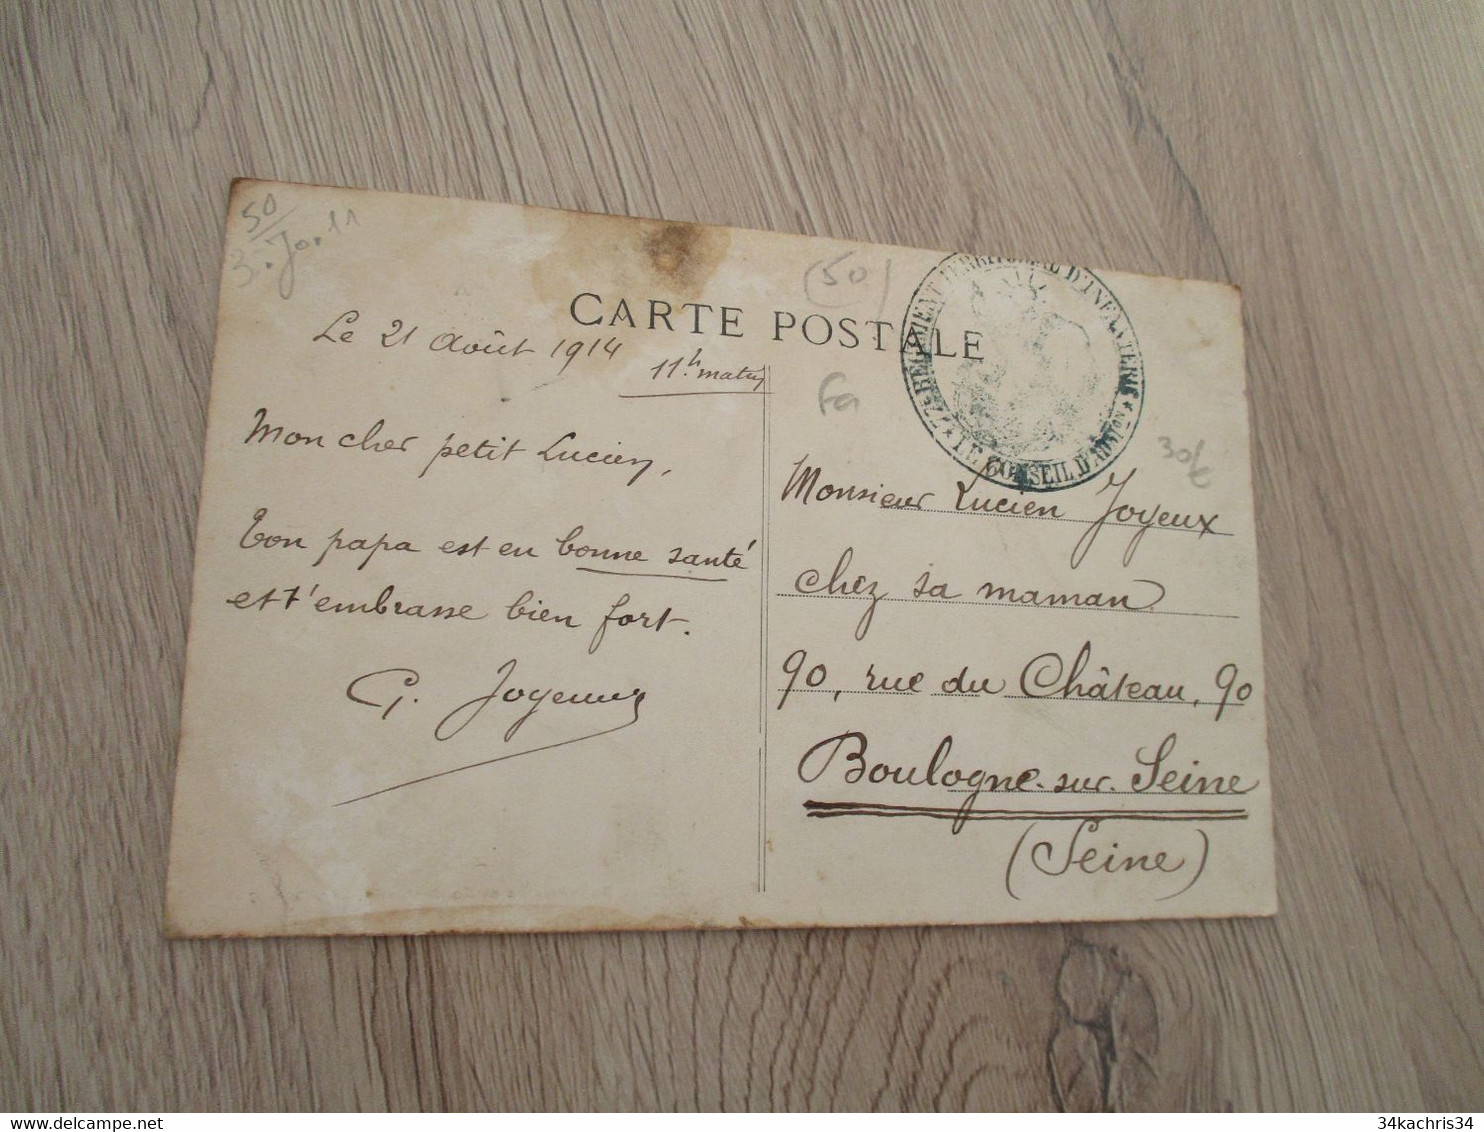 50
3. Jo. 11
(50)
CARTE POSTALE
Le 21 Août 1914
11.h matin
Mon cher petit Lucien,
Ton papa est en bonne santé
et t'embrasse bien fort.
G. Joyeux
RÉGIMENT TERRITORIAL D'INFANTERIE
LE CONSEIL D'ADTION
Fa
30/€
Monsieur Lucien Joyeux
chez sa maman
90, rue du Château, 90
Boulogne-sur-Seine
(Seine)
34kachris34